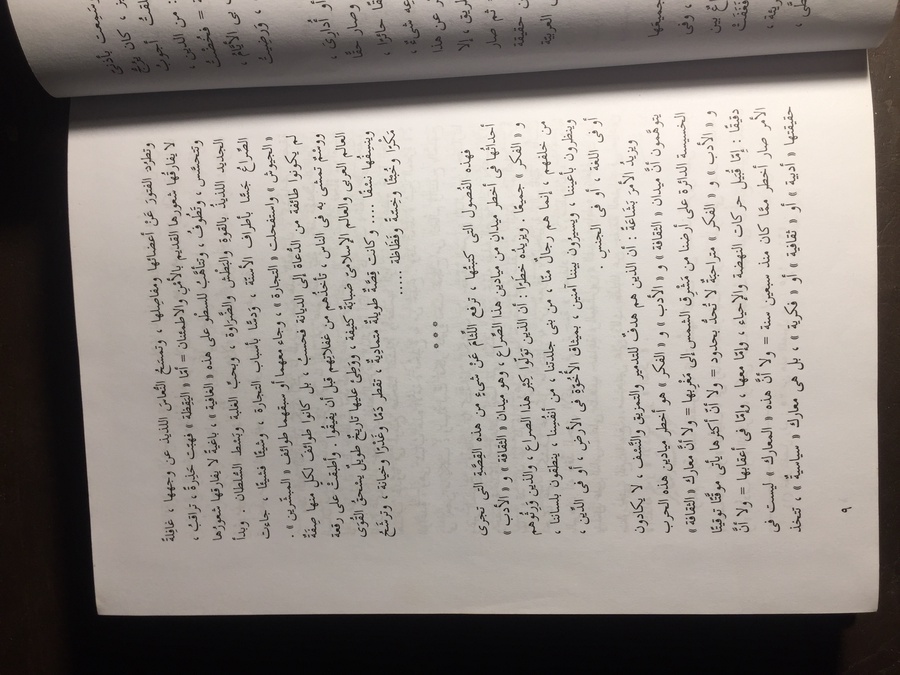 وتطرُد الفتورَ عَنْ أعضائها ومفاصلها ، وتمسَحُ النُّعاسَ اللذيذ عن وجهها ، غافِلةً
لا يفارِقُها شعورُها القديم بالأمْنِ والاطمئنان = أمّا « اليَقِظة » فهبَّتْ حَذِرةً ، تراقبُ ،
وتتحسَّس ، وتَطُوفُ ، وتتأهَّبُ للسطْو على هذه « الغافية » ، باغيةً لا يفارقها شعورُها
الجديد اللذيذ بالقوةِ والبَطْش والضَّراوَة ، وبحبِّ الغلبة وبَسْط السُّلطان . وبدأ
الصِّراعُ جَسًّا بأطراف الأسنَّة ، وَدَسًّا بأسباب التجارة ، وشيئًا فشيئًا . جاءت
« الجيوش » واستفحلت « التجارة » ، وجاء معهما أو سبقهما طوائف « المبشّرين » .
لم يكونوا طائفة من الدُّعاة إلى الديانة فحسْبُ ، بل كانوا طوائفَ لكل منها صِفةٌ
ووَسْمٌ تمشى به فى الناس ، تأخذُهم من غفلاتهم قبل أن يفيقُوا . وأطبقتْ على رقعة
العالم العربى والعالم الإسلامىّ ضبابَةٌ كثيفة ، ووَطِئَ عليها تاريخٌ طويلٌ يسْحَقُ القُوَى
وينسِفُها نسْفًا .... وكانت قِصَّةً طويلةً متماديةً ، تقطر دَمًا وغَدْرًا وخيانة ، وترشَحُ
مَكْرًا وخُبْثًا وخِسَّةً وفَظَاظَة ......
° ° °
فهذه الفُصولُ التى كتبْتُها ، ترفع اللِّثامَ عَنْ شىءٍ من هذه القِصَّةِ التى تجرى
أحداثُها فى أخطر ميدانٍ من ميادين هذا الصِّراع ، وهو ميدان « الثقافة » و « الأدب »
و « الفكر » جميعًا . ويزيدُه خطَرًا : أن الذين تولَّوا كِبْرَ هذا الصراع ، والذين وَرِثوهم
من خَلْفهم ، إنما هم رجالٌ منّا ، من بنى جِلْدَتنا ، من أنفُسِنا ، ينطقون بلساننا ،
وينظرون بأعيننا ، ويسيرون بيننا آمنين ، بميثاق الأُخُوَّةِ فى الأرضِ ، أو فى الدِّين ،
أو فى اللغة ، أو فى الجنسِ .
ويزيدُ الأمرَ بَشَاعَةً : أن الذين هم هدفٌ للتدمير والتمزيق والنَّسْف ، لا يكادون
يتوهَّمون أنَّ ميدان « الثقافة » و « الأدب » و « الفكر » هو أخطر ميادين هذه الحرب
الخسيسة الدائرة على أرضنا من مَشْرِق الشمس إلى مَغْربها = ولا أنَّ معارك « الثقافة »
و « الأدب » و « الفكر » متراحبةٌ لا تُحَدُّ بحدود = ولا أنّ أكثرها يأتى موقَّتًا توقيتًا
دقيقًا : إمّا قُبَيل حركات النهضة والإحياء ، وإمّا معها ، وإمّا فى أعقابها = ولا أنَّ
الأمر صار أخطر ممّا كان منذ سبعين سنة = ولا أنّ هذه « المعارك » ليست فى
حقيقتها « أدبية » أو « ثقافية » أو « فكرية » ، بل هى معارك « سياسية » ، تتخذ
٩